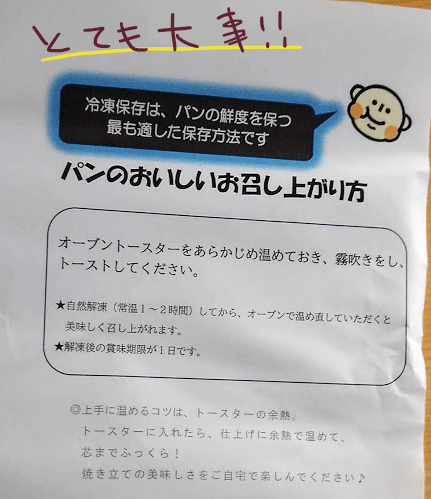 とても大事!!
冷凍保存は、パンの鮮度を保つ
最も適した保存方法です
パンのおいしいお召し上がり方
オーブントースターをあらかじめ温めておき、霧吹きをし、
トーストしてください。
★自然解凍（常温１～２時間）してから、オーブンで温め直していただくと
美味しく召し上がれます。
★解凍後の賞味期限が１日です。
◎上手に温めるコツは、トースターの余熱。
トースターに入れたら、仕上げに余熱で温めて、
芯までふっくら！
焼き立ての美味しさをご自宅で楽しんでください♪